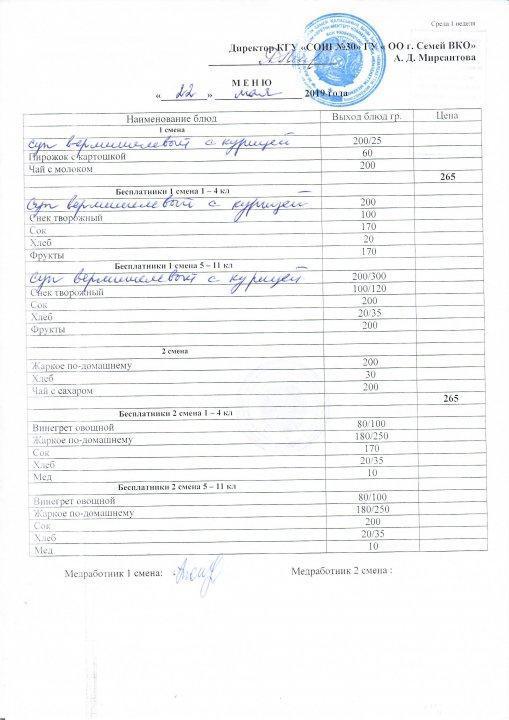 Среда 1 неделя
Директор КГУ «СОШ №30» ГУ « ОО г. Семей ВКО»
А. Д. Мирсаитова
МЕНЮ
« 22 » мая 2019 года
Наименование блюд Выход блюд гр. Цена
1 смена
суп вермишелевый с курицей 200/25
Пирожок с картошкой 60
Чай с молоком 200
265
Бесплатники 1 смена 1 – 4 кл
суп вермишелевый с курицей 200
Снек творожный 100
Сок 170
Хлеб 20
Фрукты 170
Бесплатники 1 смена 5 – 11 кл
суп вермишелевый с курицей 200/300
Снек творожный 100/120
Сок 200
Хлеб 20/35
Фрукты 200
2 смена
Жаркое по-домашнему 200
Хлеб 30
Чай с сахаром 200
265
Бесплатники 2 смена 1 – 4 кл
Винегрет овощной 80/100
Жаркое по-домашнему 180/250
Сок 170
Хлеб 20/35
Мед 10
Бесплатники 2 смена 5 – 11 кл
Винегрет овощной 80/100
Жаркое по-домашнему 180/250
Сок 200
Хлеб 20/35
Мед 10
Медработник 1 смена: Медработник 2 смена :